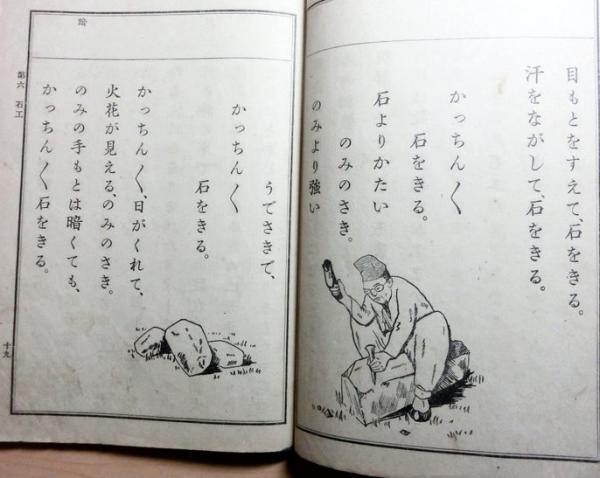 目もとをすえて、石をきる。
汗をながして、石をきる。
かっちん〳〵
石をきる。
石よりかたい
のみのさき。
のみより強い
暗
うでさきで、
かっちん〳〵
石をきる。
かっちん〳〵、日がくれて、
火花が見える、のみのさき。
のみの手もとは暗くても、
かっちん〳〵石をきる。
第六 石工
十九